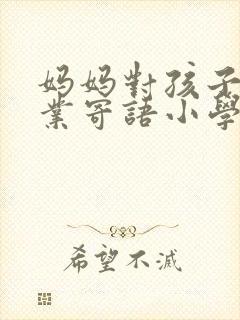 媽媽對孩子
業寄語小學
希望不滅